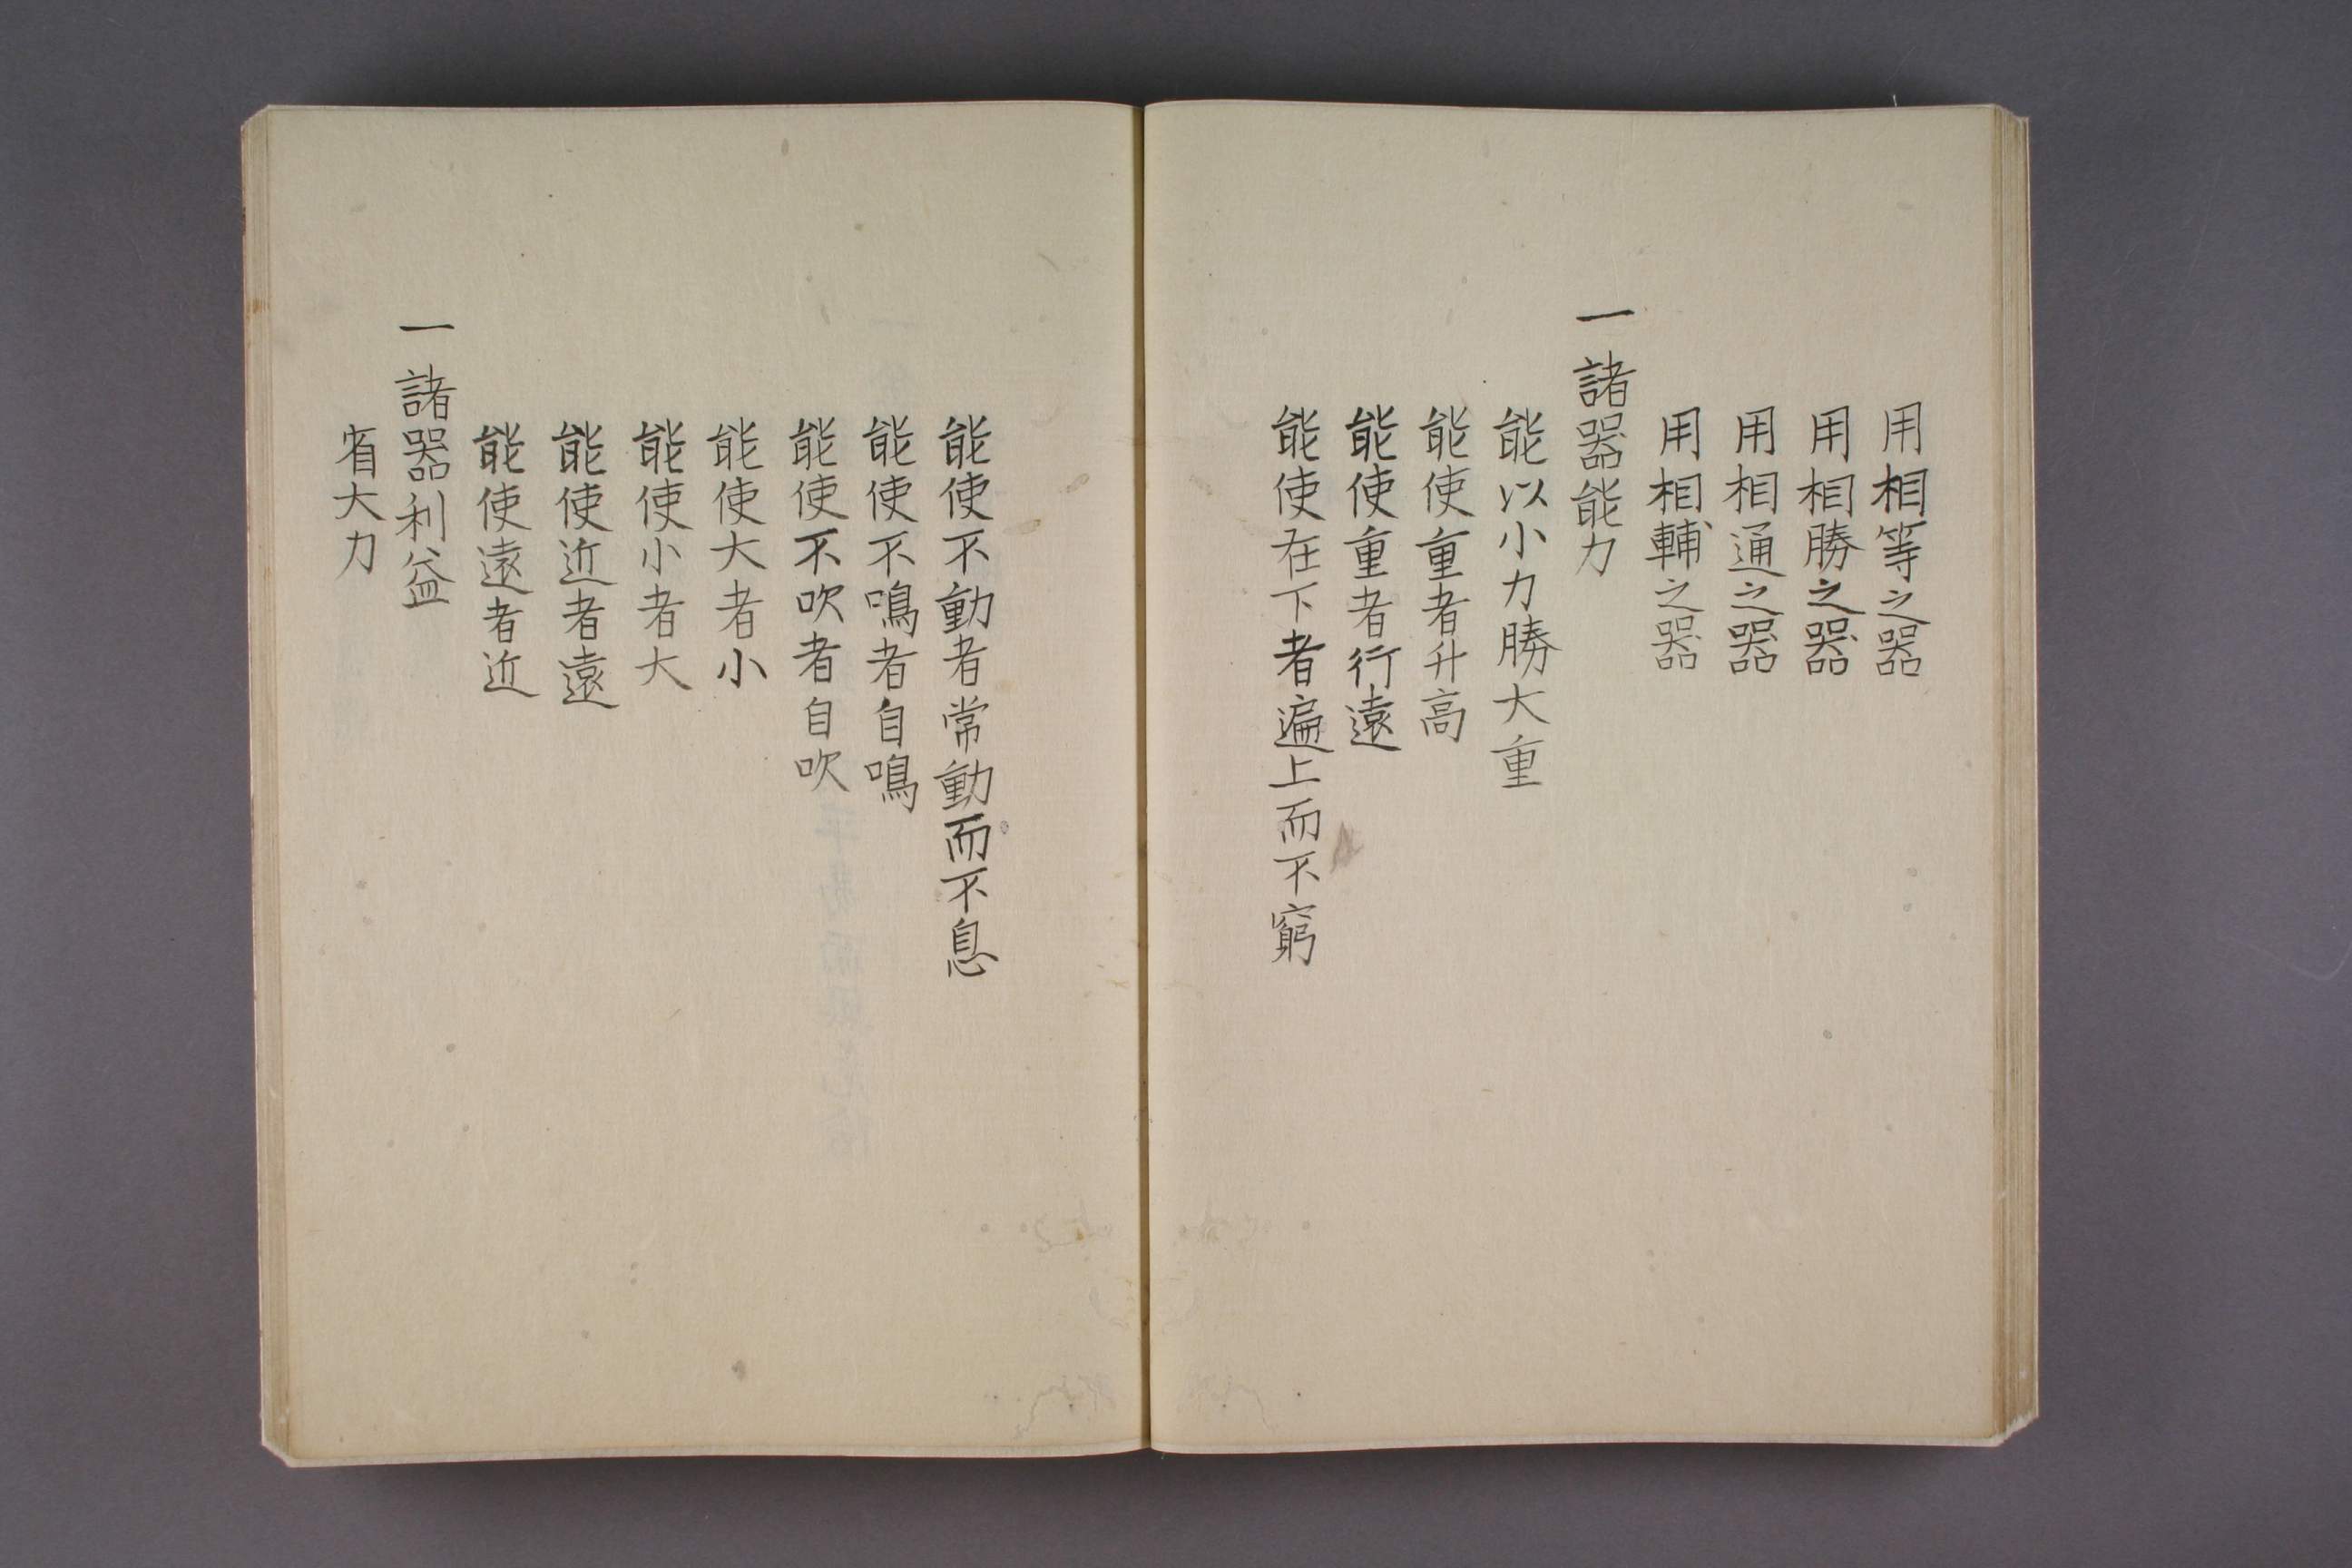 用相等之器
用相勝之器
用相通之器
用相輔之器
一諸器能力
能以小力勝大重
能使重者升高
能使重者行遠
能使在下者遍上而不窮
能使不動者常動而不息
能使不鳴者自鳴
能使不吹者自吹
能使大者小
能使小者大
能使近者遠
能使遠者近
一諸器利益
省大力